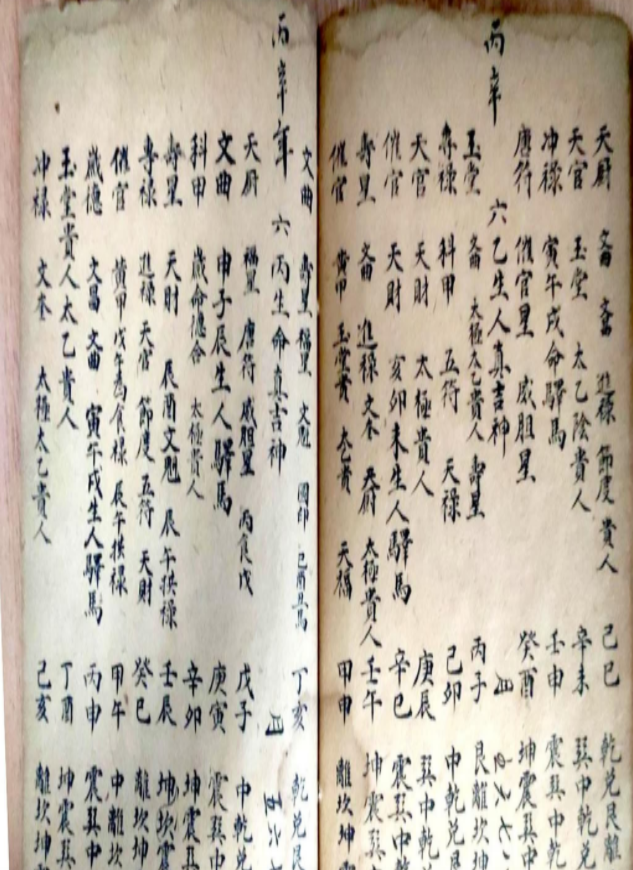 丙辛
天厨 文曲 文昌 進禄 節度貴人 己巳 乾兑艮離
天官 玉堂 太乙陰貴人 辛未 巽中乾
冲禄 寅午戌命驛馬 壬申 震巽中乾
唐符 催官星 威胆星 癸酉 坤震巽中
六乙生人真吉神 四 七
玉堂 文曲 太極太乙貴人 壽星 丙子 艮離坎坤
專禄 科甲 五符 天禄 己卯 中乾兑艮
天官 天財 太極貴人 庚辰 巽中乾兑
催官 天財 亥卯未生人驛馬 辛巳 震巽中乾
壽星 文曲 進禄 文奎 天厨 太極貴人 壬午 坤震巽中
催官 黄甲 玉堂貴 太乙貴 天福 甲申 離坎坤震
丙辛年
文曲 壽星 福星 文魁 國印 丁亥 乾兑艮離
六丙生命真吉神 四 五六七
天厨 福星 唐符 威胆星 丙食戊 戊子 中乾兑
文曲 申子辰生人驛馬 庚寅 震巽中
科甲 歲命德合 太極貴人 辛卯 坤震巽
壽星 天財 辰酉文魁 辰午拱禄 壬辰 坎坤震
專禄 進禄 天官 節度 五符 天財 癸巳 離坎坤
催官 黄甲 戊午為食禄 辰午拱禄 甲午 離坎
歲德 文昌 文曲 寅午戌生人驛馬 丙申 震巽中
玉堂貴人太乙貴人 丁酉 坤震巽
冲禄 文奎 太極太乙貴人 己亥 離坎坤